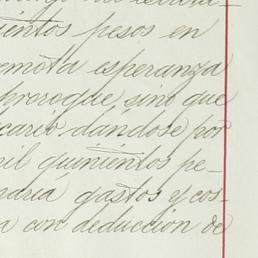 ientos pesos en
emota esperanza
prorogue, sino que
cario, dandose por
mil quinientos pe-
gastos y cos-
a con deducción de